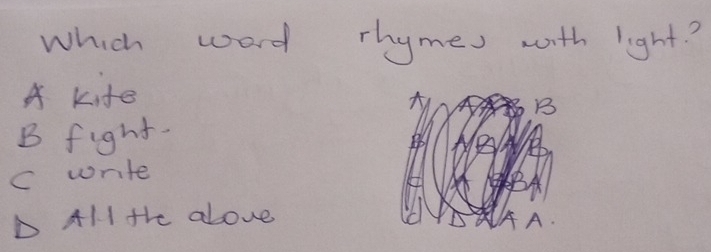 Which word rhymes with light?
A kite
B fight.
C write
D All the above